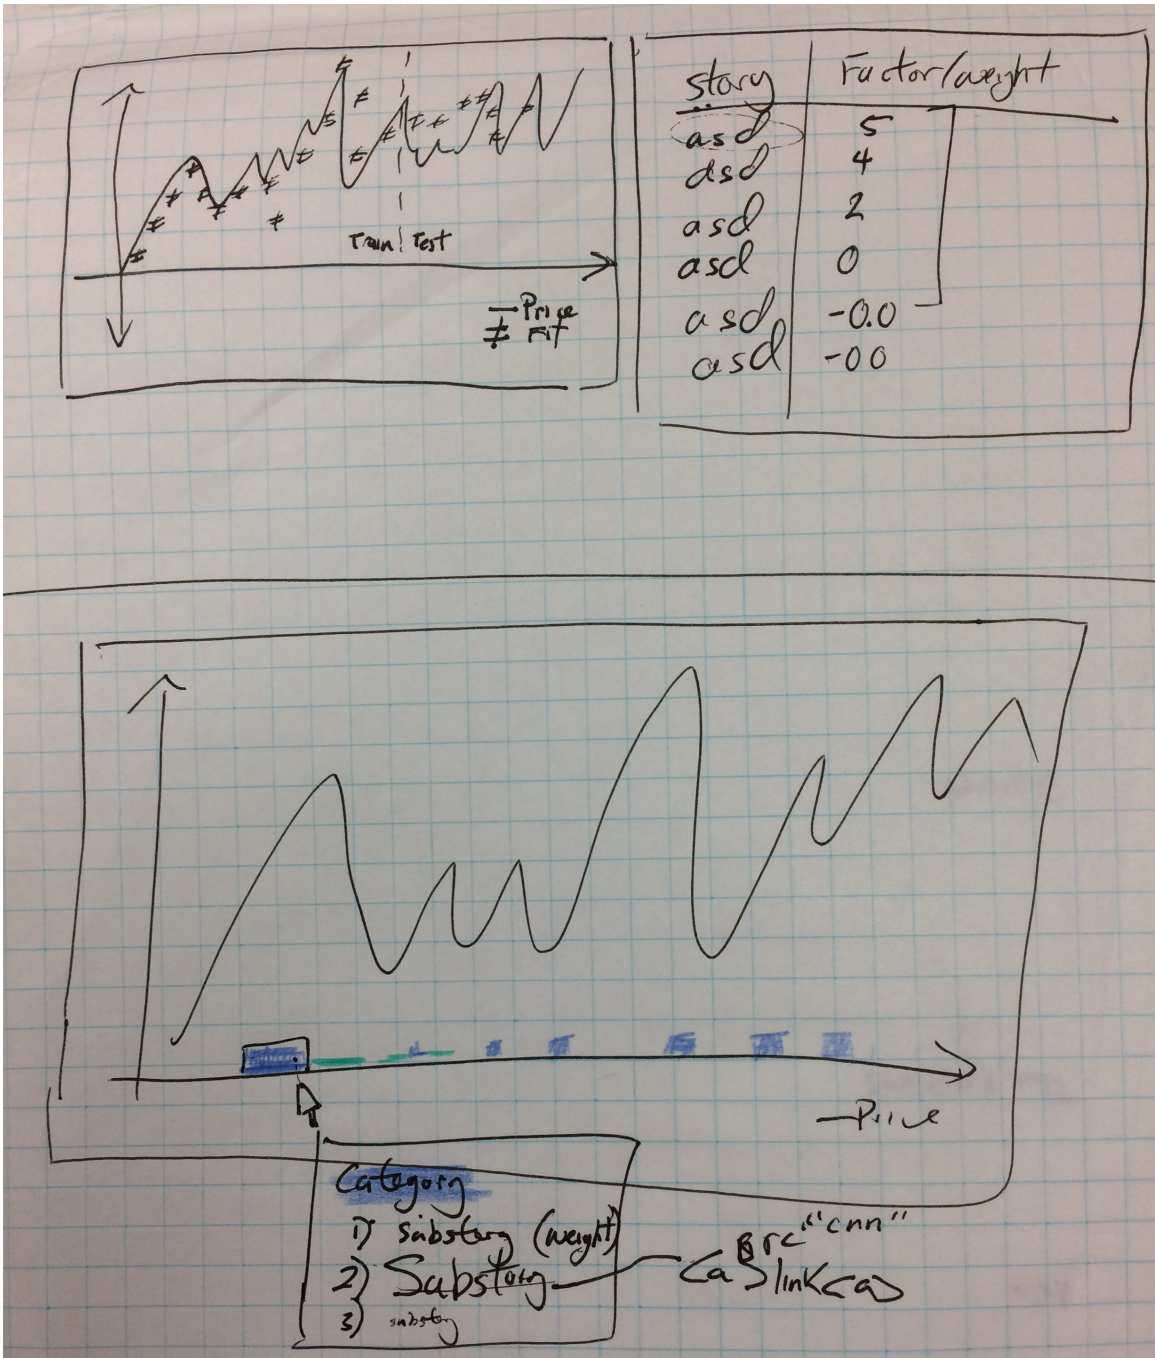 Train Test
Price
Fit
story Factor/weight
asd 5
asd 4
asd 2
asd 0
asd -0.0
asd -00
Price
Category
1) substory (weight)
2) Substory
3) substory
src "cnn"
<a> link <a>